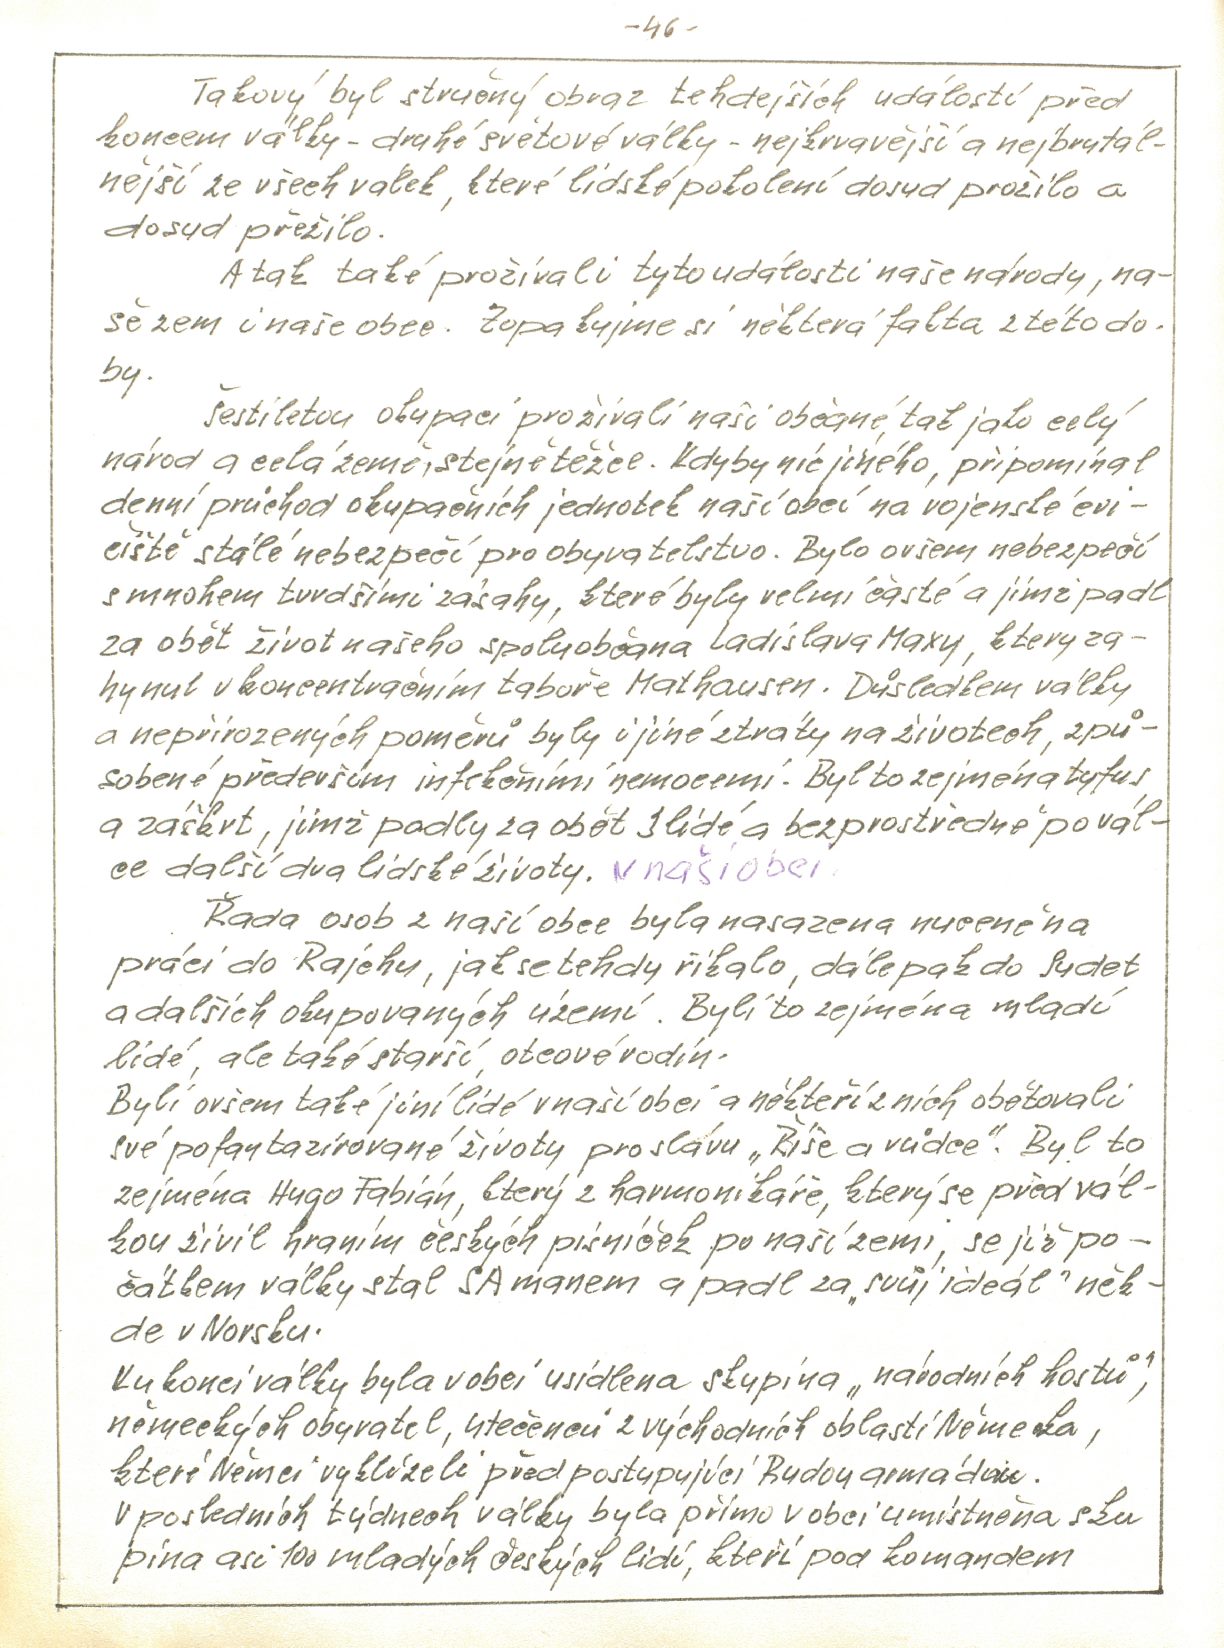 -46-
Takový byl stručný obraz tehdejších událostí před
koncem války - druhé světové války - nejkrvavější a nejbrutál-
nější ze všech válek, které lidské pokolení dosud prožilo a
dosud přežilo.
A tak také prožívali tyto události naše národy, na-
še zem i naše obec. Zopakujme si některá fakta z této do-
by.
Šestiletou okupaci prožívali naši občané, tak jako celý
národ a celá země, stejně těžce. Kdyby nic jiného, připomínal
denní průchod okupačních jednotek naší obcí na vojenské cvi-
čiště stálé nebezpečí pro obyvatelstvo. Bylo ovšem nebezpečí
s mnohem tvrdšími zásahy, které byly velmi časté a jimž padl
za oběť život našeho spoluobčana Ladislava Maxy, který za-
hynul v koncentračním táboře Mathausen. Důsledkem války
a nepřirozených poměrů byly i jiné ztráty na životech, způ-
sobené především infekčními nemocemi. Byl to zejména tyfus
a záškrt, jimž padly za oběť 3 lidé a bezprostředně po vál-
ce další dva lidské životy. v naší obci.
Řada osob z naší obce byla nasazena nuceně na
práci do Rajchu, jak se tehdy říkalo, dále pak do Sudet
a dalších okupovaných území. Byli to zejména mladí
lidé, ale také starší, otcové rodin.
Byli ovšem také jiní lidé v naší obci a někteří z nich obětovali
své pofantazírované životy pro slávu „Říše a vůdce“. Byl to
zejména Hugo Fabián, který z harmonikáře, který se před vál-
kou živil hraním českých písniček po naší zemi, se již po-
čátkem války stal SA manem a padl za „svůj ideál“ něk-
de v Norsku.
Ku konci války byla v obci usídlena skupina „národních hostů“,
německých obyvatel, utečenců z východních oblastí Německa,
které Němci vyklízeli před postupující Rudou armádou.
V posledních týdnech války byla přímo v obci umístněna sku
pina asi 100 mladých českých lidí, kteří pod komandem